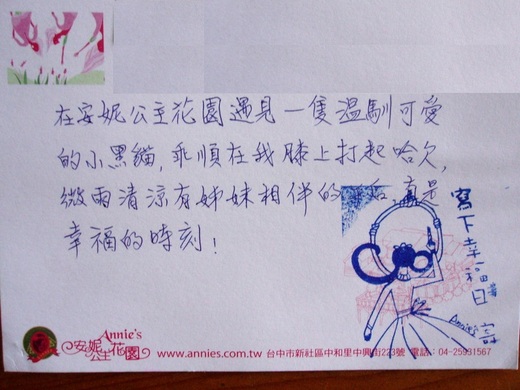 在安妮公主花園遇見一隻溫馴可愛
的小黑貓,乖順在我膝上打起哈欠,
微雨清涼有姊妹相伴的午后,真是
幸福的時刻!
寫下幸福時
Annie's
Annie's
安妮公主花園
www.annies.com.tw 台中市新社區中和里中興街223號 電話:04-25931567